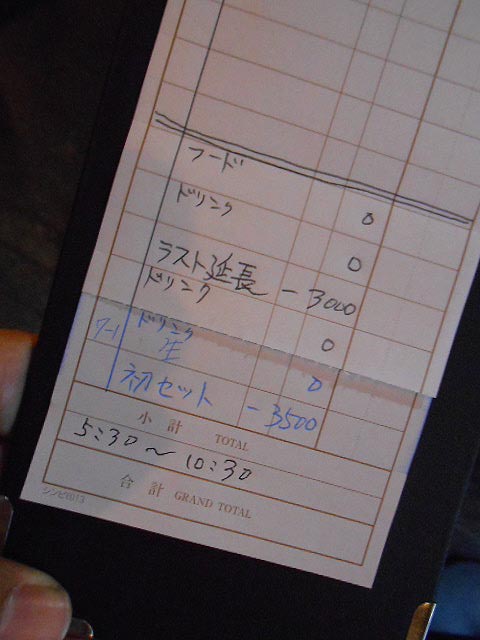 フード
ドリンク 0
0
ラスト延長 - 3000
ドリンク
0
ドリンク
生 0
初セット - 3500
小計 TOTAL
5:30～10:30
合計 GRAND TOTAL
シンビ6013